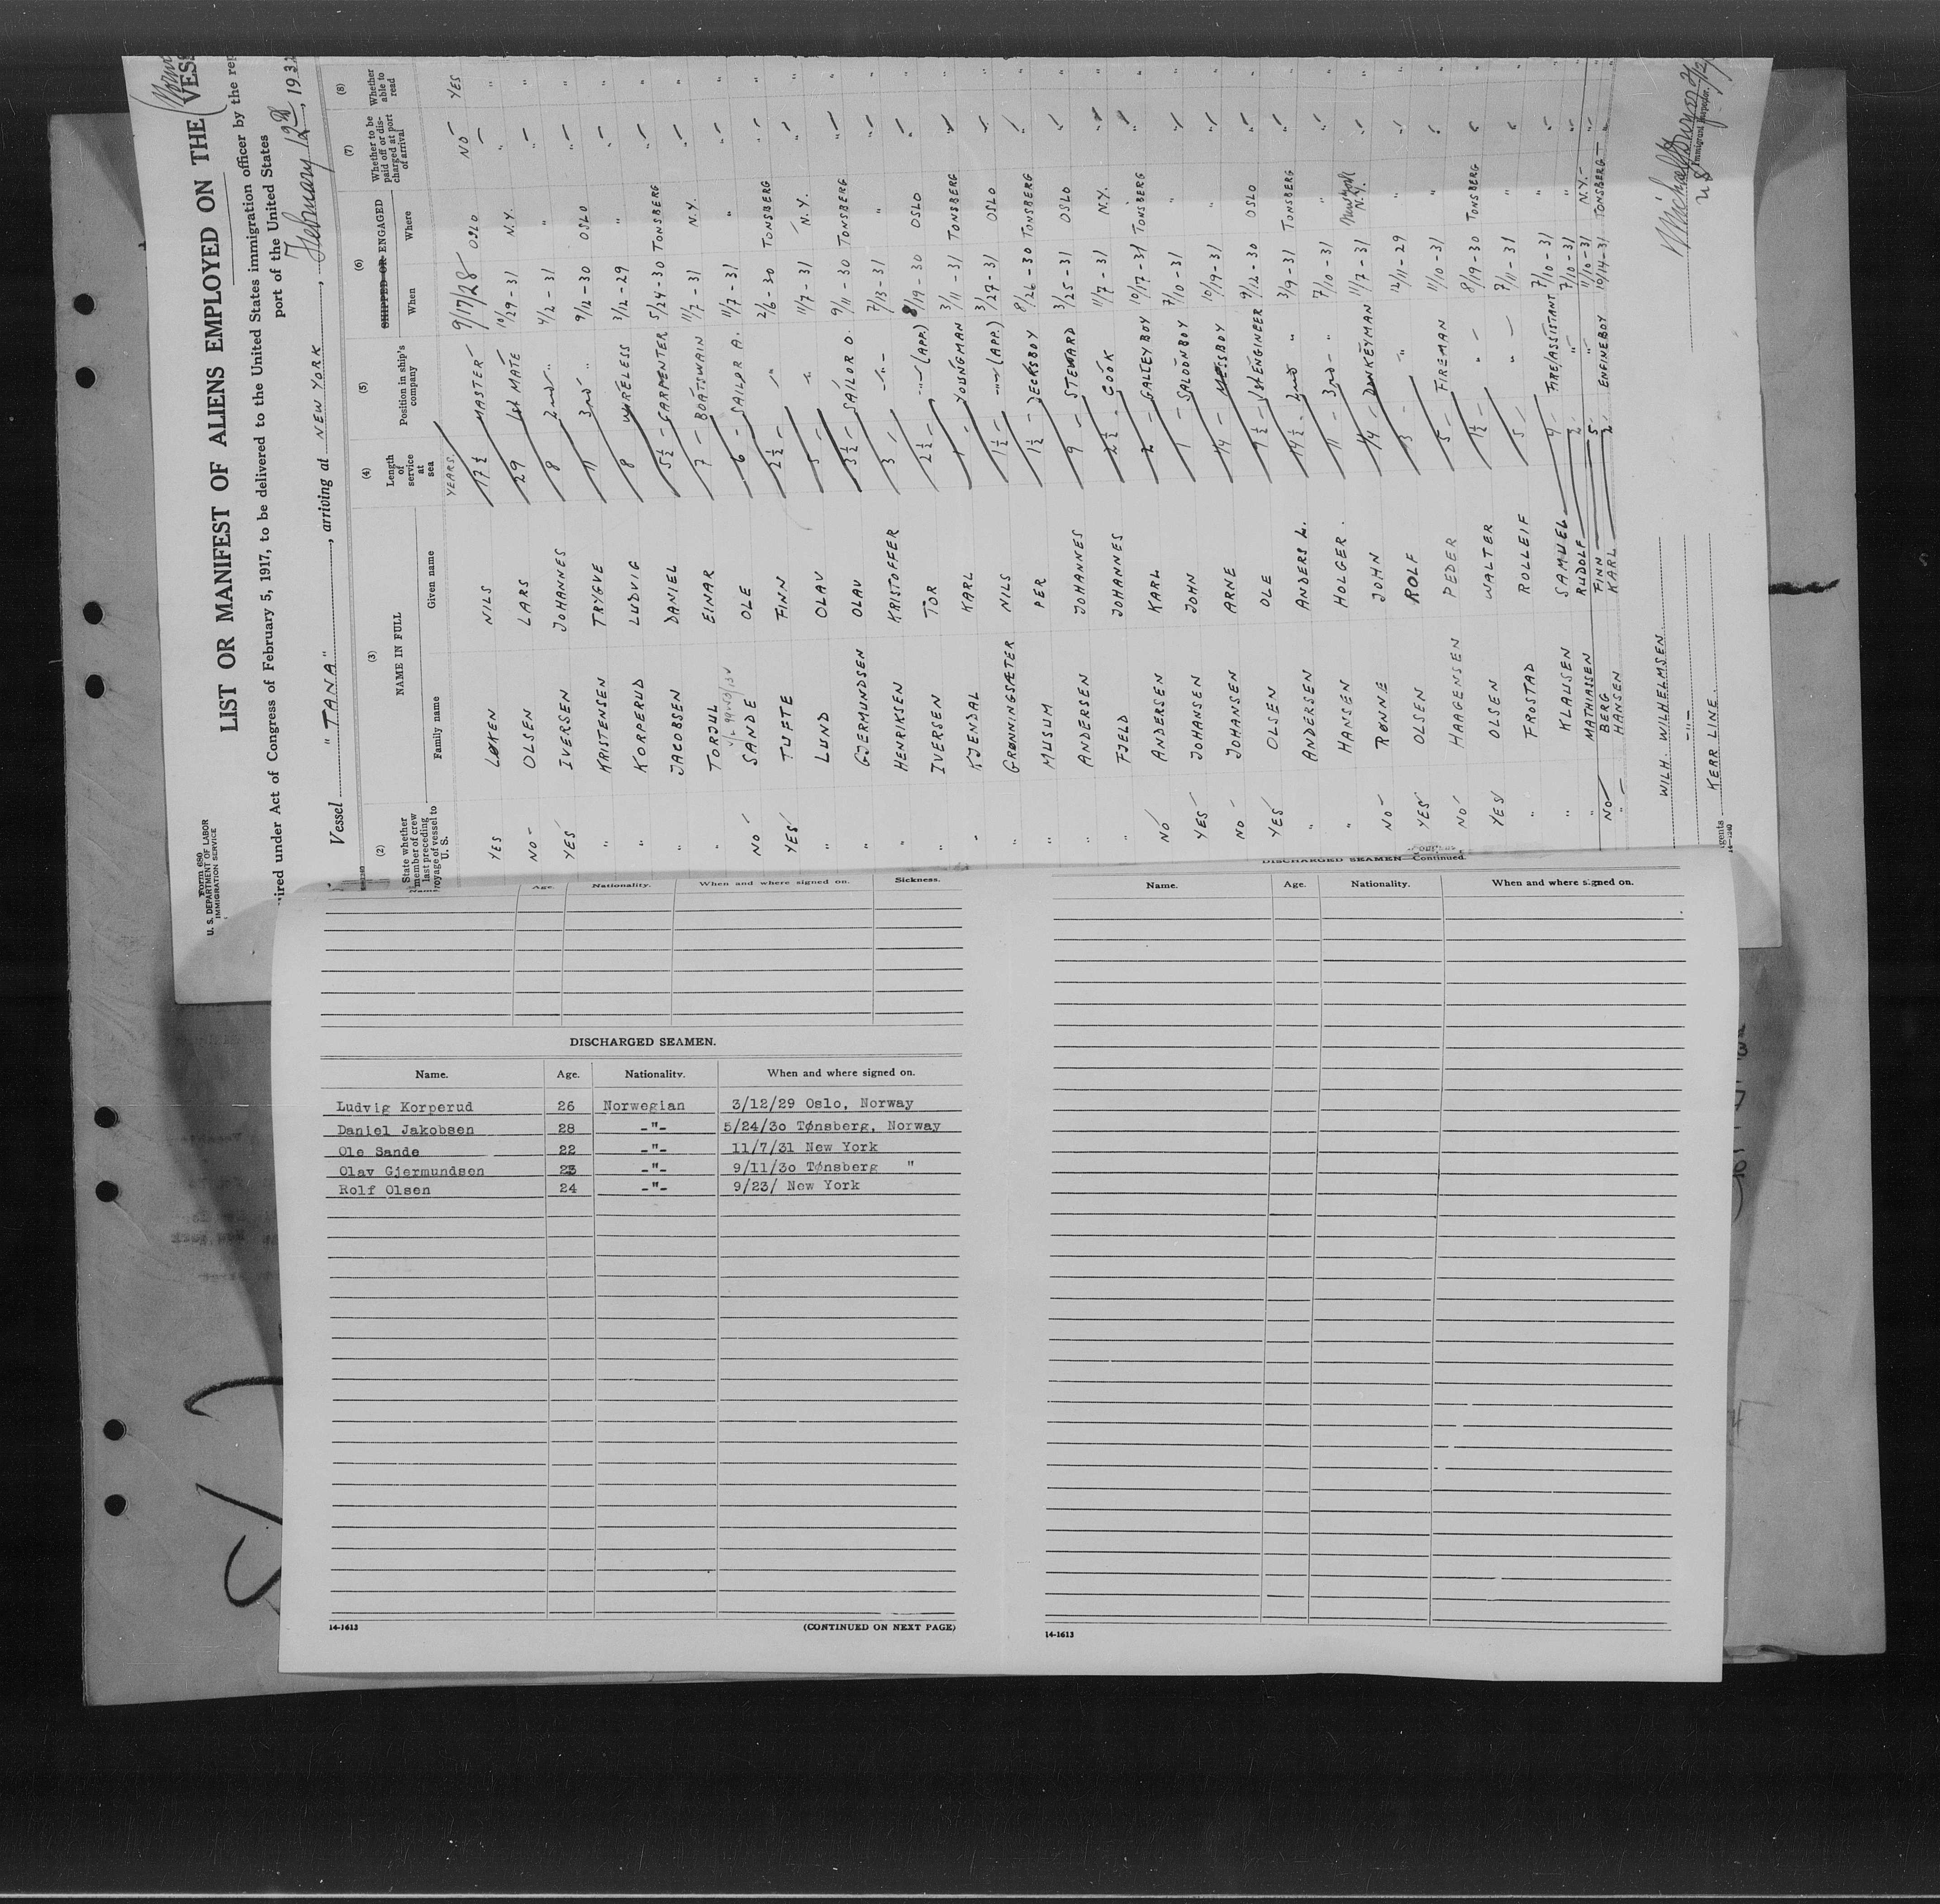 Form 680
U. S. DEPARTMENT OF LABOR
IMMIGRATION SERVICE
LIST OR MANIFEST OF ALIENS EMPLOYED ON THE
ired under Act of Congress of February 5, 1917, to be delivered to the United States immigration officer by the
port of the United States
Vessel "TANA", arriving at NEW YORK, February 12th, 1932
(2) (3) (4) (5) (6) (7) (8)
State whether member of crew last preceding voyage of vessel to U. S. NAME IN FULL Family name Given name Length of service at sea Position in ship's company SHIPPED OR ENGAGED When Where Whether to be paid off or discharged at port of arrival Whether able to read
YEARS.
YES LØKEN NILS 17½ MASTER 9/17/28 OSLO NO YES
NO OLSEN LARS 29 1st MATE 10/29-31 N.Y. " "
YES IVERSEN JOHANNES 8 2nd " 4/2-31 " " "
" KRISTENSEN TRYGVE 11 3rd " 9/12-30 OSLO " "
" KORPERUD LUDVIG 8 WIRELESS 3/12-29 " " "
" JACOBSEN DANIEL 5½ CARPENTER 5/24-30 TONSBERG " "
" TORJUL EINAR 7 BOATSWAIN 11/7-31 N.Y. " "
NO SANDE OLE 6 SAILOR A. 11/7-31 " " "
YES TUFTE FINN 2½ " 2/6-30 TONSBERG " "
" LUND OLAV 5 " 11/7-31 N.Y. " "
" GJERMUNDSEN OLAV 3½ SAILOR O. 9/11-30 TONSBERG " "
" HENRIKSEN KRISTOFFER 3 " 7/13-31 " " "
" IVERSEN TOR 2½ " (APP.) 8/19-30 OSLO " "
" KJENDAL KARL 1 YOUNGMAN 3/11-31 TONSBERG " "
" GRØNNINGSÆTER NILS 1½ " (APP.) 3/27-31 OSLO " "
" MUSUM PER 1½ DECKSBOY 8/26-30 TONSBERG " "
" ANDERSEN JOHANNES 9 STEWARD 3/25-31 OSLO " "
" FJELD JOHANNES 2½ COOK 11/7-31 N.Y. " "
NO ANDERSEN KARL 2 GALLEYBOY 10/17-31 TONSBERG " "
YES JOHANSEN JOHN 1 SALOONBOY 7/10-31 " " "
NO JOHANSEN ARNE 1/4 MESSBOY 10/19-31 " " "
YES OLSEN OLE 9½ 1st ENGINEER 9/12-30 OSLO " "
" ANDERSEN ANDERS L. 14½ 2nd " 3/9-31 TONSBERG " "
" HANSEN HOLGER. 11 3rd " 7/10-31 " " "
NO RØNNE JOHN 14 DONKEYMAN 11/7-31 New York N.Y. " "
YES OLSEN ROLF 3 " 12/11-29 " " "
NO HAAGENSEN PEDER 5 FIREMAN 11/10-31 " " "
YES OLSEN WALTER 1½ " 8/19-30 TONSBERG " "
" FROSTAD ROLLEIF 5 " 7/11-31 " " "
" KLAUSEN SAMUEL 4 FIRE/ASSISTANT 7/10-31 " " "
" MATHIASSEN RUDOLF 2 " 7/10-31 " " "
NO BERG FINN 5 " 11/10-31 N.Y. " "
" HANSEN KARL 2 ENGINEBOY 10/14-31 TONSBERG " "
WILH. WILHELMSEN.
-"-
gents KERR LINE.
Immigrant Inspector.
Age. Nationality. When and where signed on. Sickness.
DISCHARGED SEAMEN.
Name. Age. Nationality. When and where signed on.
Ludvig Korperud 26 Norwegian 3/12/29 Oslo, Norway
Daniel Jakobsen 28 -"- 5/24/3o Tønsberg, Norway
Ole Sande 22 -"- 11/7/31 New York
Olav Gjermundsen 23 -"- 9/11/3o Tønsberg "
Rolf Olsen 24 -"- 9/23/ New York
14-1613 (CONTINUED ON NEXT PAGE)
DISCHARGED SEAMEN—Continued.
Name. Age. Nationality. When and where signed on.
14-1613